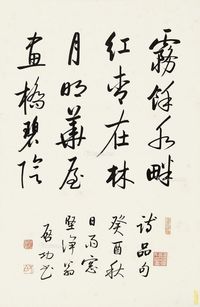 霧餘水畔
紅杏在林
月明華屋
畫橋碧陰
詩品句
癸酉秋
日雨窗
堅淨翁
啟功書